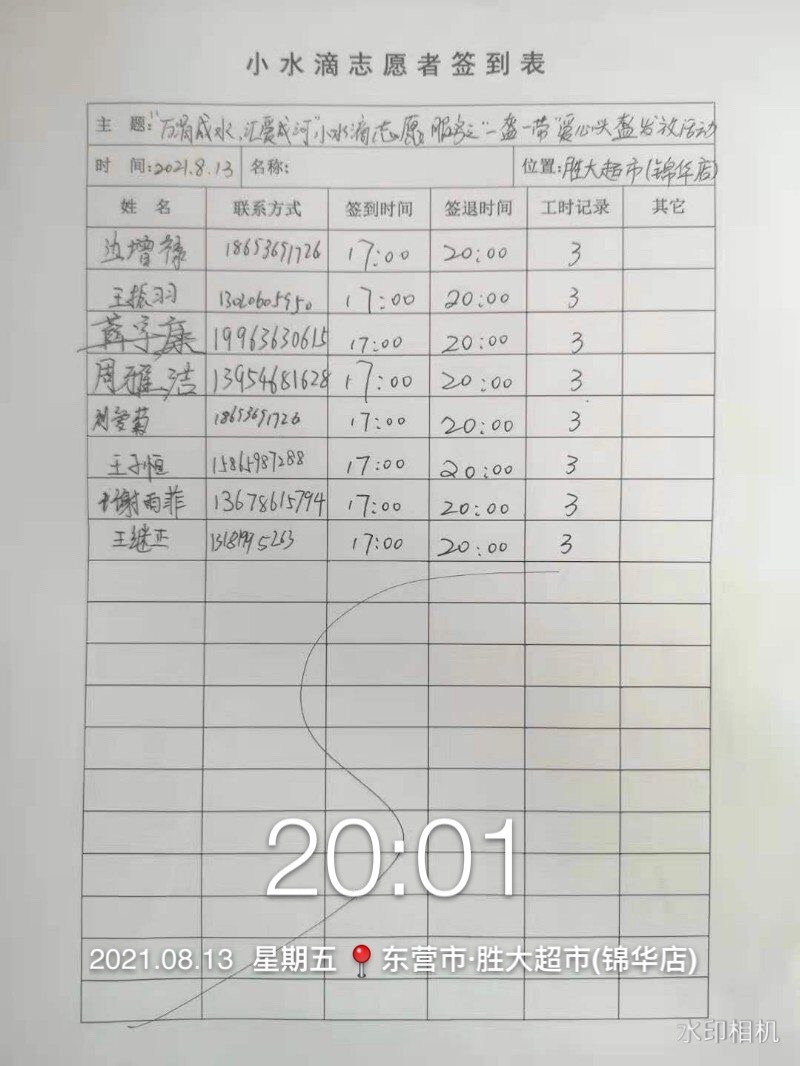 小水滴志愿者签到表
主 题:"万滴成水,汇爱成河"小水滴志愿服务之"一盔一带"爱心头盔发放活动
时 间:2021.8.13 名称: 位置:胜大超市(锦华店)
姓 名 联系方式 签到时间 签退时间 工时记录 其它
边增禄 18653691726 17:00 20:00 3
王振羽 17:00 20:00 3
薛字康 19963630615 17:00 20:00 3
周雅洁 13954681628 17:00 20:00 3
刘爱菊 18653691726 17:00 20:00 3
王子恒 15865987288 17:00 20:00 3
谢雨菲 13678615794 17:00 20:00 3
王继正 17:00 20:00 3
20:01
2021.08.13 星期五 东营市·胜大超市(锦华店)
水印相机